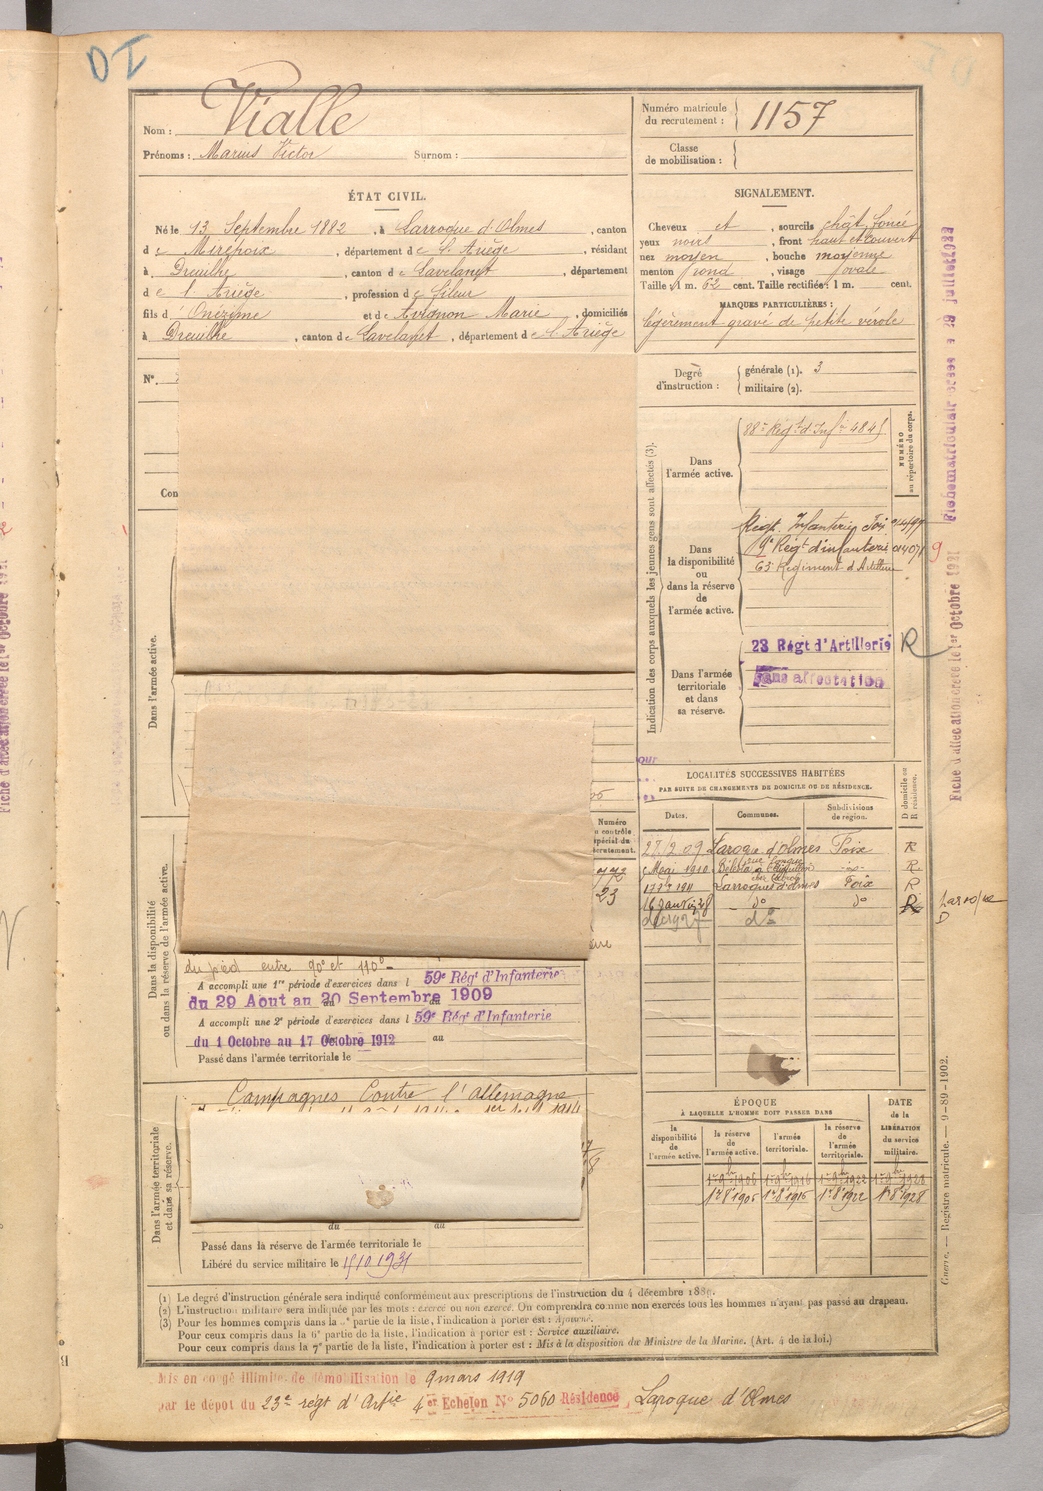 DI
Vialle
Nom :
Prénoms : Marius Victor Surnom :
Numéro matricule
du recrutement : 1157
Classe
de mobilisation :
ÉTAT CIVIL.
Né le 13 Septembre 1882, à Larroque d'Olmes, canton
de Mirepoix, département de l'Ariège, résidant
à Dreuilhe, canton de Lavelanet, département
de l'Ariège, profession de fileur
fils d'Onézime et de Avignon Marie, domiciliés
à Dreuilhe, canton de Lavelanet, département de l'Ariège
SIGNALEMENT.
Cheveux et, sourcils chât. foncé
yeux noirs, front haut et couvert
nez moyen, bouche moyenne
menton rond, visage ovale
Taille : 1 m. 62 cent. Taille rectifiée : 1 m. cent.
MARQUES PARTICULIÈRES :
légèrement gravé de petite vérole
Nº.
Con
Degré
d'instruction :
générale (1). 3
militaire (2).
Indication des corps auxquels les jeunes gens sont affectés (3).
NUMÉRO
au répertoire du corps.
Dans
l'armée active.
Dans
la disponibilité
ou
dans la réserve
de
l'armée active.
Régt. Infanterie Foix
Régt d'infanterie
9
Régiment d'Artillerie
Dans l'armée
territoriale
et dans
sa réserve.
23 Régt d'Artillerie R
Sans affectation
Dans l'armée active.
LOCALITÉS SUCCESSIVES HABITÉES
PAR SUITE DE CHANGEMENTS DE DOMICILE OU DE RÉSIDENCE.
Dates. Communes. Subdivisions
de région.
D domicile ou
R résidence.
27.2.09 Laroque d'olmes Foix R
Mai 1910 R
1911 Larroque d'olmes Foix R
16 Janv 28 dº dº R
dº
Larroque
D
Numéro
772
23
Dans la disponibilité
ou dans la réserve de l'armée active.
du pied entre 90° et 110°
A accompli une 1re période d'exercices dans l 59e Régt d'Infanterie
du 29 Aout au 20 Septembre 1909
au
A accompli une 2e période d'exercices dans l 59e Régt d'Infanterie
du 1 Octobre au 17 Octobre 1912
au
Passé dans l'armée territoriale le
Dans l'armée territoriale
et dans sa réserve.
Campagnes Contre l'allemagne
du au
Passé dans la réserve de l'armée territoriale le
Libéré du service militaire le 15/10 1931
ÉPOQUE
À LAQUELLE L'HOMME DOIT PASSER DANS
la
disponibilité
de
l'armée active.
la réserve
de
l'armée active.
l'armée
territoriale.
la réserve
de
l'armée
territoriale.
DATE
de la
LIBÉRATION
du service
militaire.
1r 9bre 1906 1r 9bre 1916 1r 9bre 1922 1r 9bre 1928
1r 8 1905 1r 8 1915 1r 8 1922 1r 8 1928
(1) Le degré d'instruction générale sera indiqué conformément aux prescriptions de l'instruction du 4 décembre 1889.
(2) L'instruction militaire sera indiquée par les mots : exercé ou non exercé. On comprendra comme non exercés tous les hommes n'ayant pas passé au drapeau.
(3) Pour les hommes compris dans la 5e partie de la liste, l'indication à porter est : Ajourné.
Pour ceux compris dans la 6e partie de la liste, l'indication à porter est : Service auxiliaire.
Pour ceux compris dans la 7e partie de la liste, l'indication à porter est : Mis à la disposition du Ministre de la Marine. (Art. 4 de la loi.)
Guerre. — Registre matricule. — 9-89-1902.
Mis en congé illimité de démobilisation le 9 mars 1919
par le dépot du 23e régt d'Artie 4er Echelon Nº 5060 Résidence Laroque d'Olmes